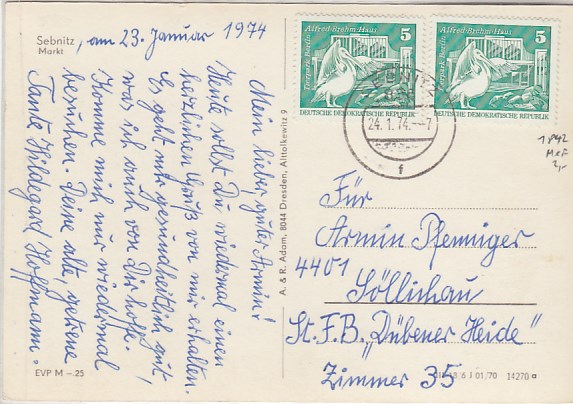 Sebnitz, am 23. Januar 1974
Markt
Mein lieber, guter Armin!
Heute sollst Du wiedermal einen
herzlichen Gruß von mir erhalten.
Es geht mir gesundheitlich gut,
was ich auch von Dir hoffe.
Komme mich nur wiedermal
besuchen. Deine alte, getreue
Tante Hildegard Hoffmann.
EVP M –.25
A. & R. Adam, 8044 Dresden, Alttolkewitz 9
Alfred-Brehm-Haus 5
Tierpark Berlin
DEUTSCHE DEMOKRATISCHE REPUBLIK
Alfred-Brehm-Haus 5
Tierpark Berlin
DEUTSCHE DEMOKRATISCHE REPUBLIK
24.1.74.--7
f
1842
MeF
2,-
Für
Armin Pfenniger
4401
Söllichau
St. F. B. „Dübener Heide"
Zimmer 35
01/70 14270 a